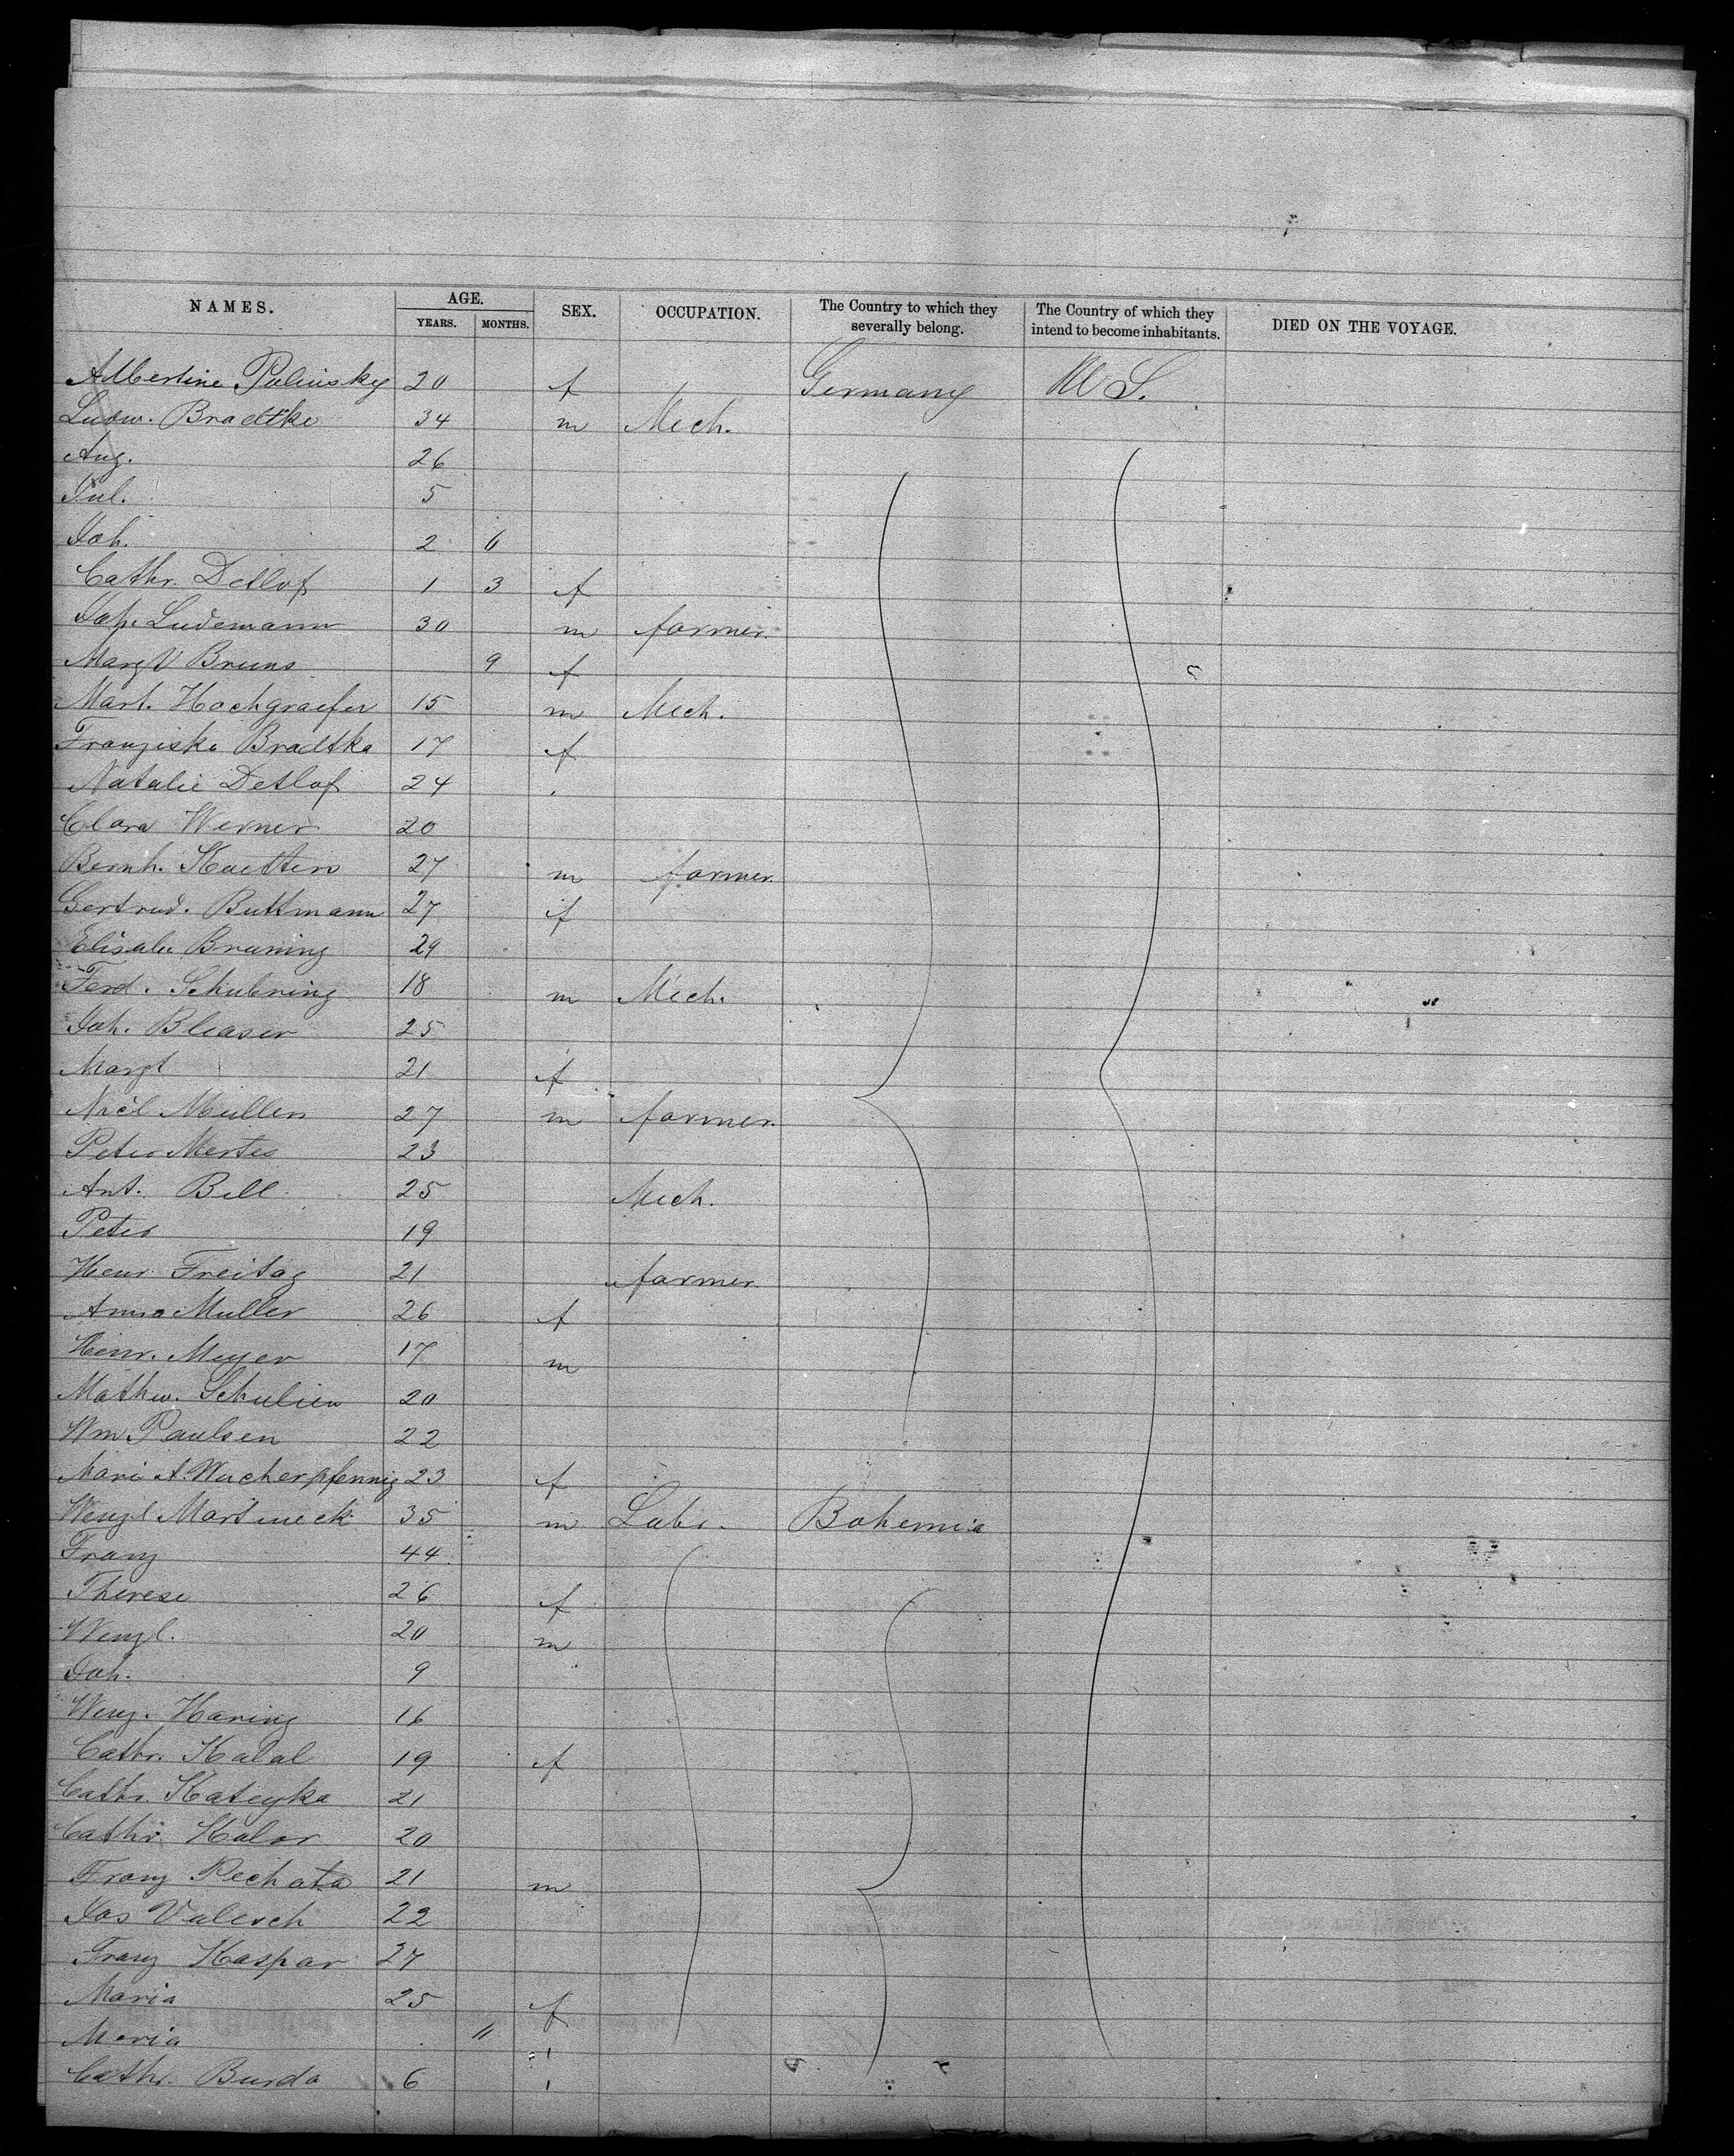 NAMES. AGE. YEARS. MONTHS. SEX. OCCUPATION. The Country to which they severally belong. The Country of which they intend to become inhabitants. DIED ON THE VOYAGE.
Albertine Polinsky 20 f Germany U S.
Ludw. Bradtke 34 m Mech.
Aug. 26
Jul. 5
Joh. 2 6
Cathr. Detlof 1 3 f
Joh. Ludemann 30 m farmer.
Margt Bruns 9 f
Mart. Hochgraefer 15 m Mech.
Franziska Bradtka 17 f
Natalie Detlof 24
Clara Werner 20
Bernh. Kaetters 27 m farmer.
Gertrud. Buttmann 27 f
Elisabe Bruning 29
Ferd. Schubring 18 m Mech.
Joh. Bleaser 25
Margt 21 f
Nicl Mullers 27 m farmer.
Peter Mertes 23
Ant. Bill 25 Mech.
Peter 19
Henr Freitag 21 farmer
Anna Muller 26 f
Heinr. Meyer 17 m
Mathw. Schulien 20
Wm Paulsen 22
Mari A. Wucherpfennig 23 f
Wenzl Martineck 35 m Labr. Bohemia
Franz 44
Therese 26 f
Wenzl. 20 m
Joh. 9
Wenz. Haring 16
Cathr. Kalal 19 f
Cathr. Kateyka 21
Cathr. Kolar 20
Franz Pechata 21 m
Jos Valesch 22
Franz Kaspar 27
Maria 25 f
Maria 11
Cathr. Burda 6